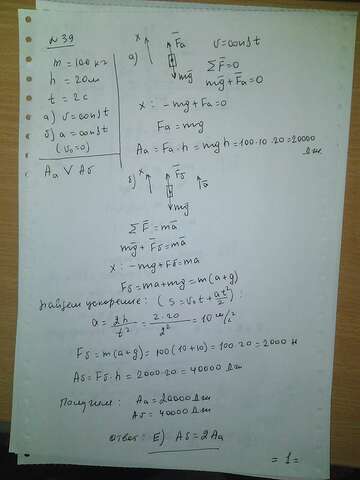 N 39
m = 100 кг
h = 20м
t = 2 с
а) v = const
б) a = const
(v₀=0)
Aа V Aб
а) x F̅а
m̅g̅
v = const
ΣF̅ = 0
mg̅ + F̅а = 0
x: -mg + Fа = 0
Fа = mg
Aа = Fа · h = mgh = 100·10·20 = 20000 Дж
б) x F̅б a̅
mg̅
ΣF̅ = ma̅
mg̅ + F̅б = ma̅
x: -mg + Fб = ma
Fб = ma + mg = m(a+g)
найдем ускорение: (S = v₀t + at²/2):
a = 2h/t² = 2·20/2² = 10 м/с²
Fб = m(a+g) = 100(10+10) = 100·20 = 2000 Н
Aб = Fб·h = 2000·20 = 40000 Дж
Получаем: Aа = 20000 Дж
Aб = 40000 Дж
ответ: E) Aб = 2Aа
= 1 =